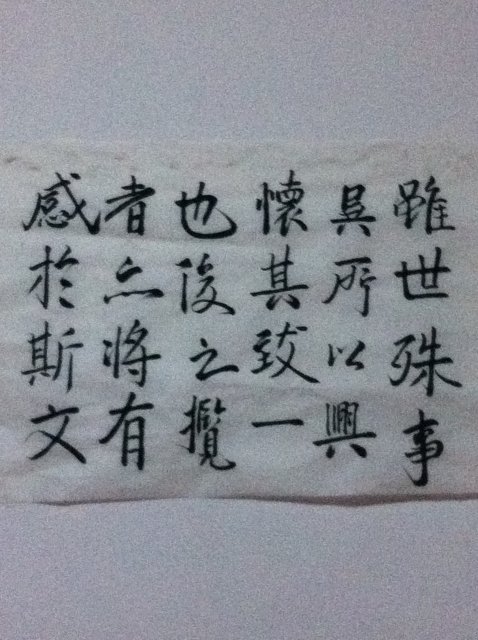 雖世殊事
異所以興
懷其致一
也後之攬
者亦將有
感於斯文